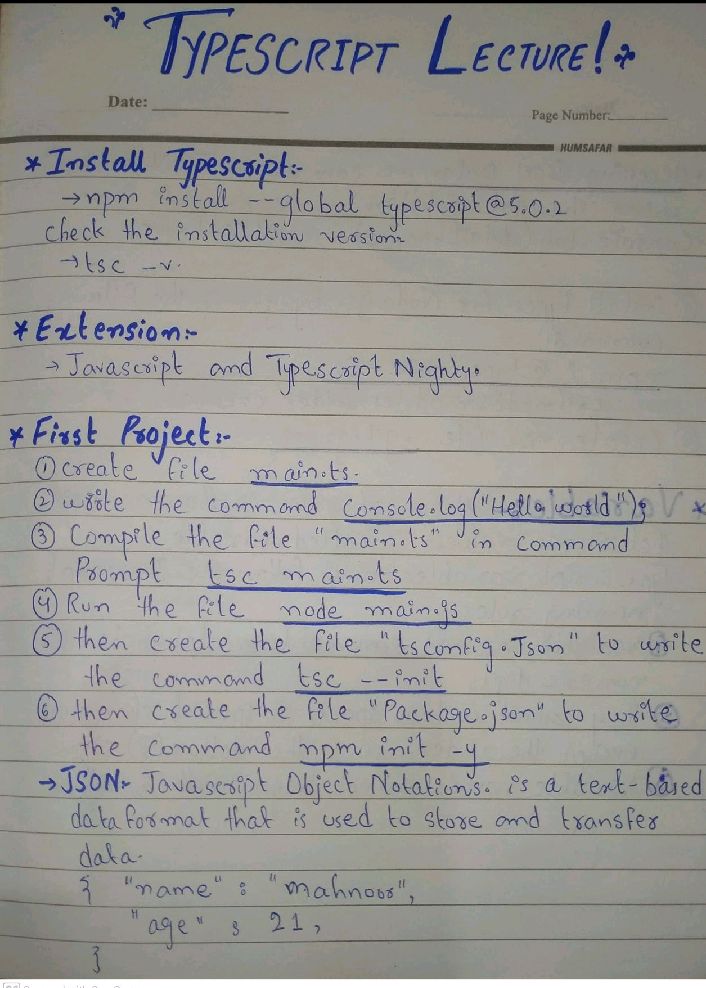 TYPESCRIPT LECTURE!
Date:
Page Number:
HUMSAFAR
* Install Typescript:-
→ npm install --global typescript@5.0.2
check the installation version:-
→ tsc -v.
* Extension:-
→ Javascript and Typescript Nighty.
* First Project:-
① create file main.ts.
② write the command console.log("Hello world");
③ Compile the file "main.ts" in command
Prompt tsc main.ts
④ Run the file node main.js
⑤ then create the file "tsconfig.Json" to write
the command tsc --init
⑥ then create the file "Package.json" to write
the command npm init -y
→ JSON:- Javascript Object Notations. is a text-based
data format that is used to store and transfer
data.
{ "name" : "mahnoor",
"age" : 21,
}